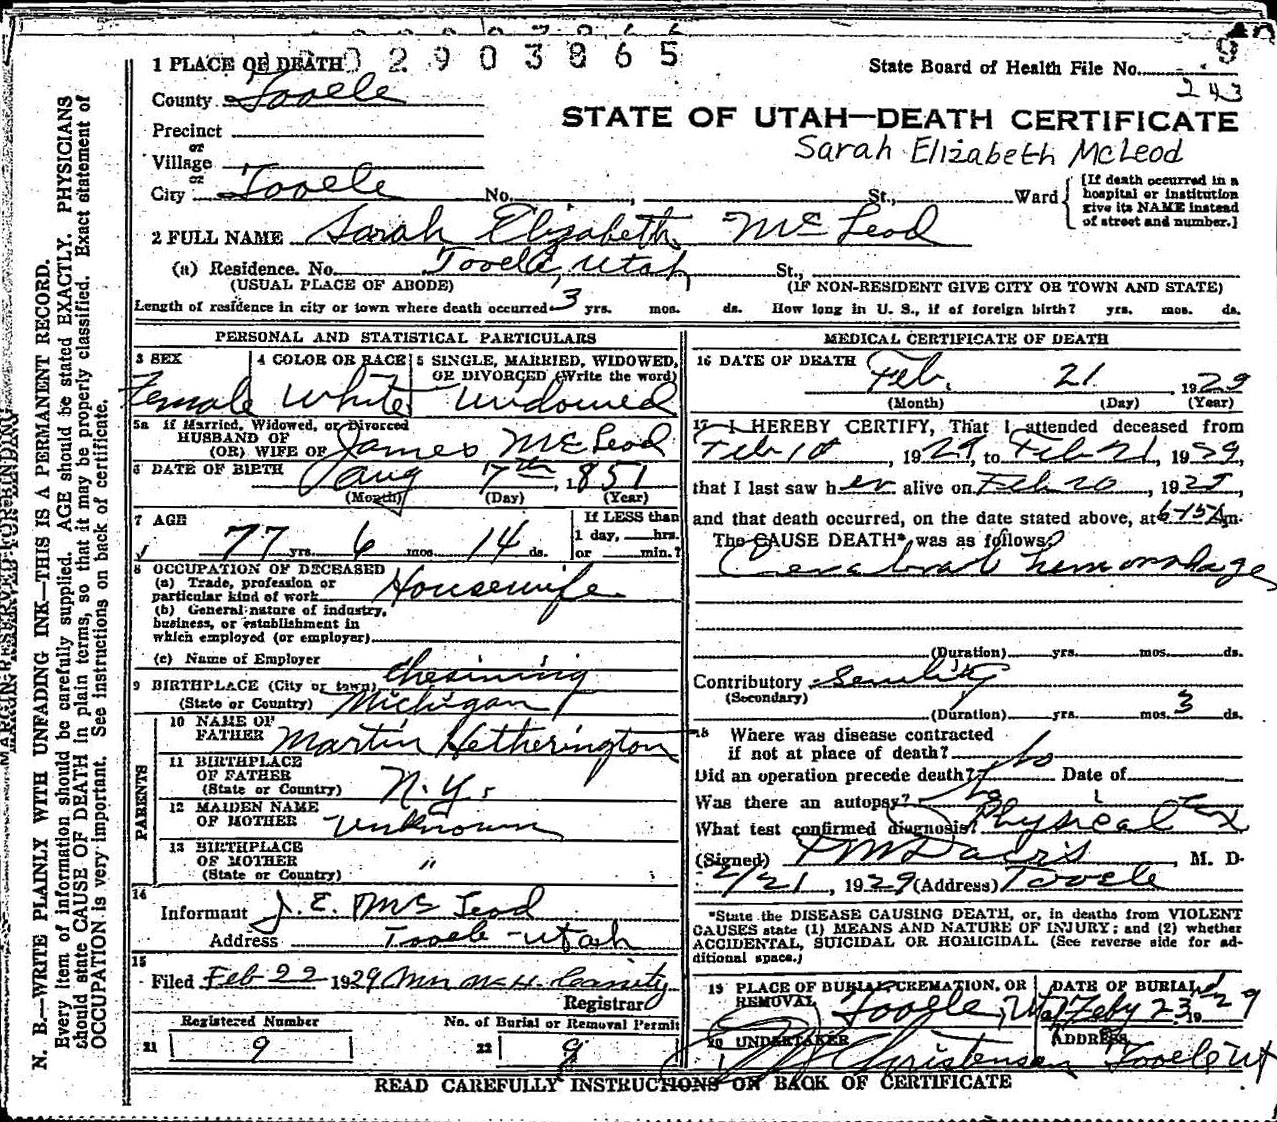 02903865
1 PLACE OF DEATH
State Board of Health File No. 9
243
County Tooele
STATE OF UTAH—DEATH CERTIFICATE
Precinct
or
Sarah Elizabeth McLeod
Village
or
City Tooele No. , St., Ward
[If death occurred in a hospital or institution give its NAME instead of street and number.]
2 FULL NAME Sarah Elizabeth McLeod
(a) Residence. No. Tooele, Utah St.,
(USUAL PLACE OF ABODE) (IF NON-RESIDENT GIVE CITY OR TOWN AND STATE)
Length of residence in city or town where death occurred 3 yrs. mos. ds. How long in U. S., if of foreign birth? yrs. mos. ds.
PERSONAL AND STATISTICAL PARTICULARS
3 SEX
Female
4 COLOR OR RACE
White
5 SINGLE, MARRIED, WIDOWED, OR DIVORCED (Write the word)
Widowed
5a If Married, Widowed, or Divorced
HUSBAND OF
(OR) WIFE OF James McLeod
6 DATE OF BIRTH Aug 7th, 1851
(Month) (Day) (Year)
7 AGE
77 yrs. 6 mos. 14 ds.
If LESS than
1 day, hrs.
or min.?
8 OCCUPATION OF DECEASED
(a) Trade, profession or
particular kind of work Housewife
(b) General nature of industry,
business, or establishment in
which employed (or employer)
(c) Name of Employer
9 BIRTHPLACE (City or town) Chesining
(State or Country) Michigan
PARENTS
10 NAME OF
FATHER Martin Hetherington
11 BIRTHPLACE
OF FATHER
(State or Country) N.Y.
12 MAIDEN NAME
OF MOTHER Unknown
13 BIRTHPLACE
OF MOTHER
(State or Country) "
14
Informant J. E. McLeod
Address Tooele - Utah
15
Filed Feb 22 1929
Registrar
Registered Number
21 9
No. of Burial or Removal Permit
22 9
MEDICAL CERTIFICATE OF DEATH
16 DATE OF DEATH Feb. 21 1929
(Month) (Day) (Year)
17 I HEREBY CERTIFY, That I attended deceased from
Feb 18, 1929, to Feb 21, 1929,
that I last saw her alive on Feb 20, 192
and that death occurred, on the date stated above, at 6-15 Am.
The CAUSE DEATH* was as follows:
Cerabral hemorrhage
(Duration) yrs. mos. ds.
Contributory Senility
(Secondary)
(Duration) yrs. mos. 3 ds.
18 Where was disease contracted
if not at place of death?
Did an operation precede death? No Date of
Was there an autopsy? No
What test confirmed diagnosis? Physical Ex
(Signed) Davis, M. D.
2/21, 1929 (Address) Tooele
*State the DISEASE CAUSING DEATH, or, in deaths from VIOLENT
CAUSES state (1) MEANS AND NATURE OF INJURY; and (2) whether
ACCIDENTAL, SUICIDAL OR HOMICIDAL. (See reverse side for ad-
ditional space.)
19 PLACE OF BURIAL, CREMATION, OR
REMOVAL Tooele, Utah
DATE OF BURIAL
Feby 23rd 1929
20 UNDERTAKER
Christensen
ADDRESS
Tooele Ut
READ CAREFULLY INSTRUCTIONS ON BACK OF CERTIFICATE
MARGIN RESERVED FOR BINDING
N. B.—WRITE PLAINLY WITH UNFADING INK—THIS IS A PERMANENT RECORD.
Every item of information should be carefully supplied. AGE should be stated EXACTLY. PHYSICIANS
should state CAUSE OF DEATH in plain terms, so that it may be properly classified. Exact statement of
OCCUPATION is very important. See instructions on back of certificate.